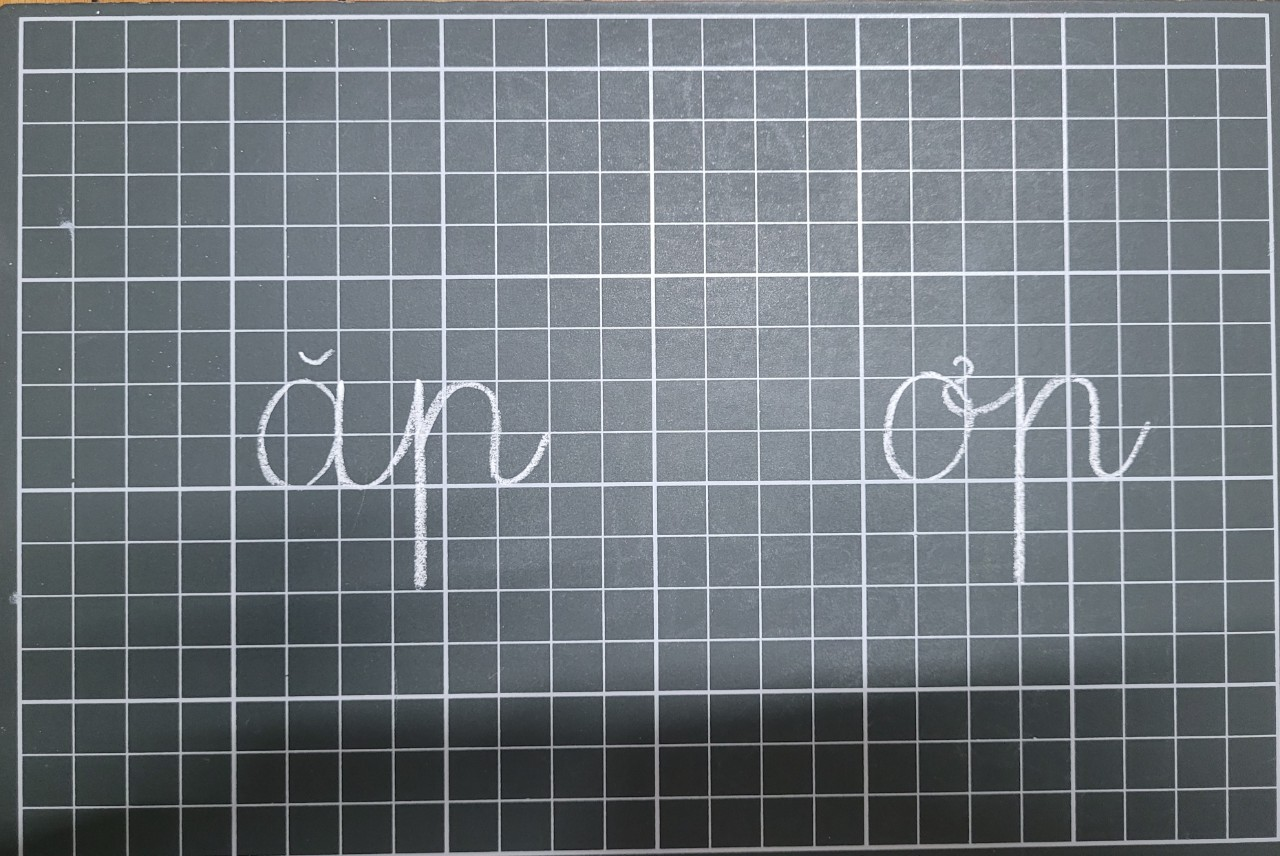 ăp ơp